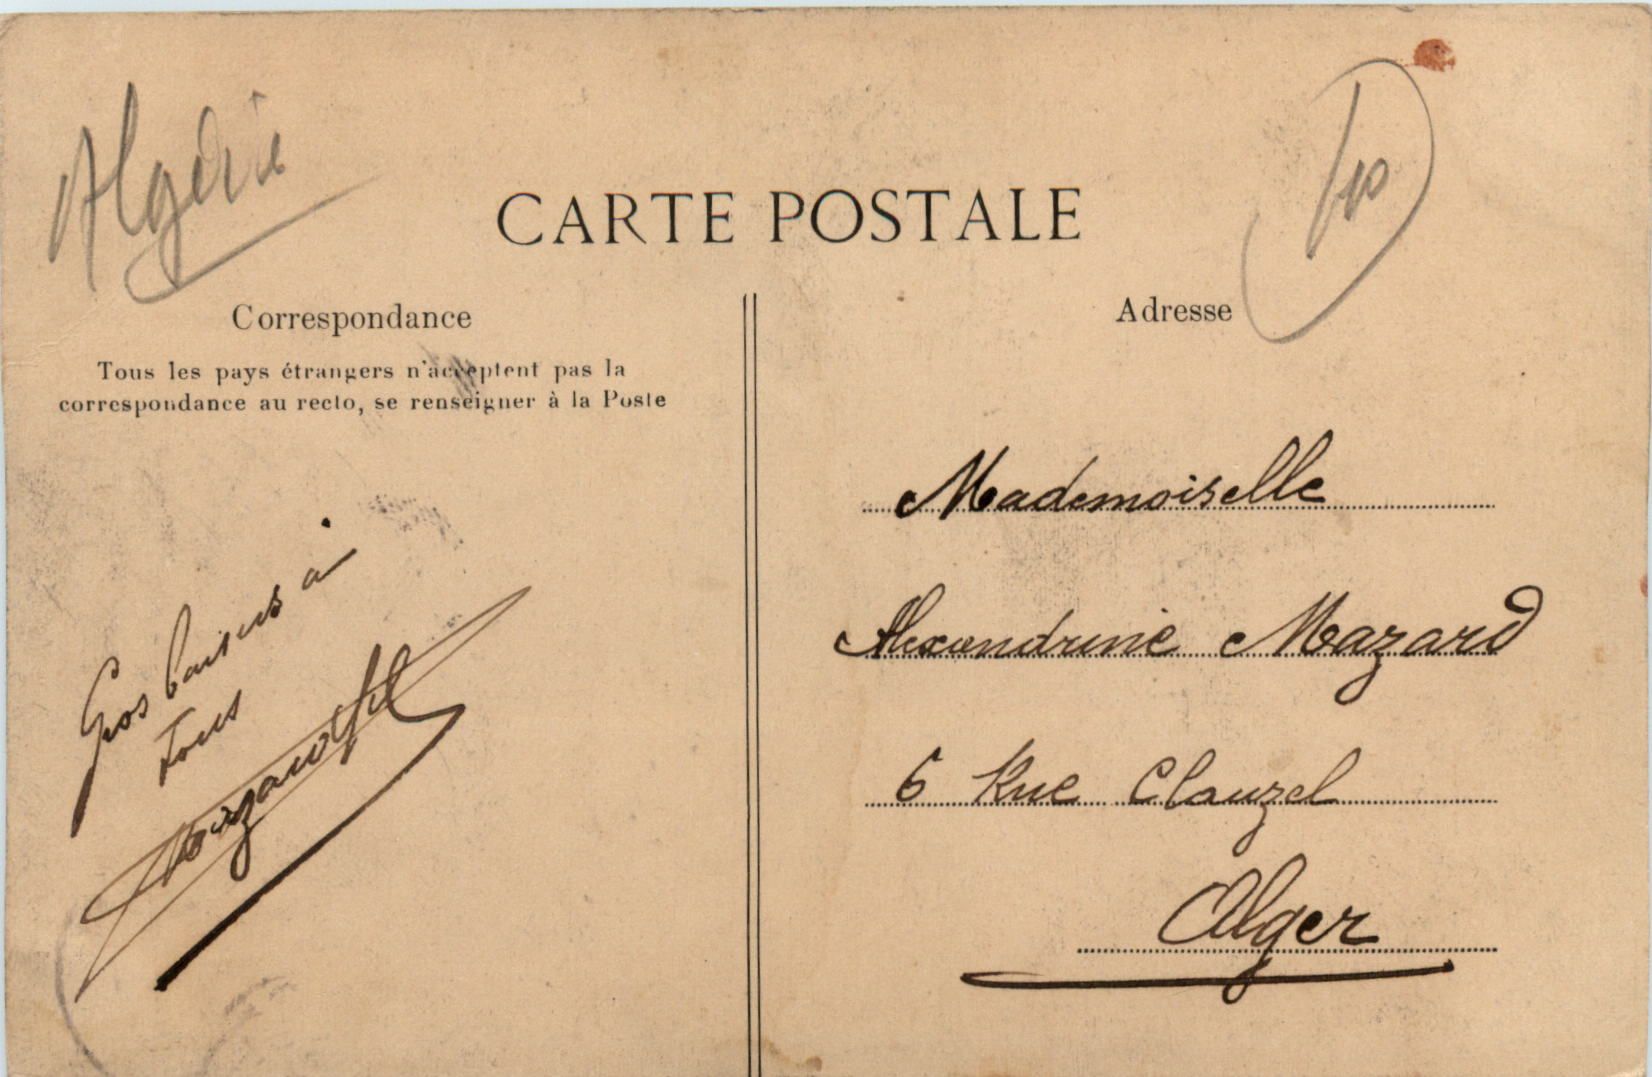 Algérie
CARTE POSTALE
Correspondance
Tous les pays étrangers n'acceptent pas la
correspondance au recto, se renseigner à la Poste
Gros baisers à
tous
Adresse
Mademoiselle
Alexandrine Mazard
6 Rue Clauzel
Alger